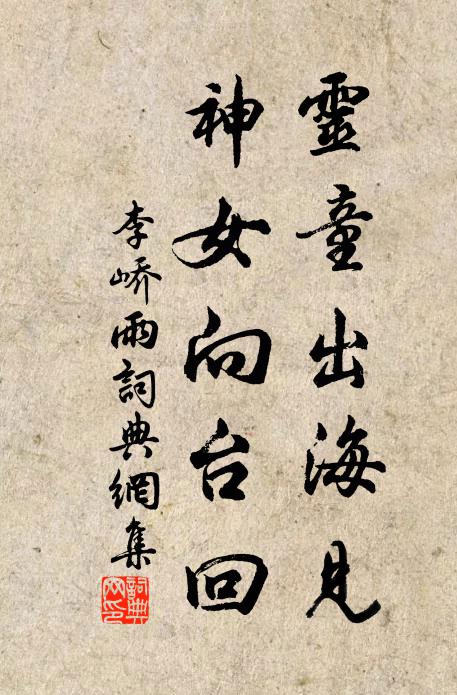 靈童出海見
神女向台回
李嶠雨詞典網集
詞典網印